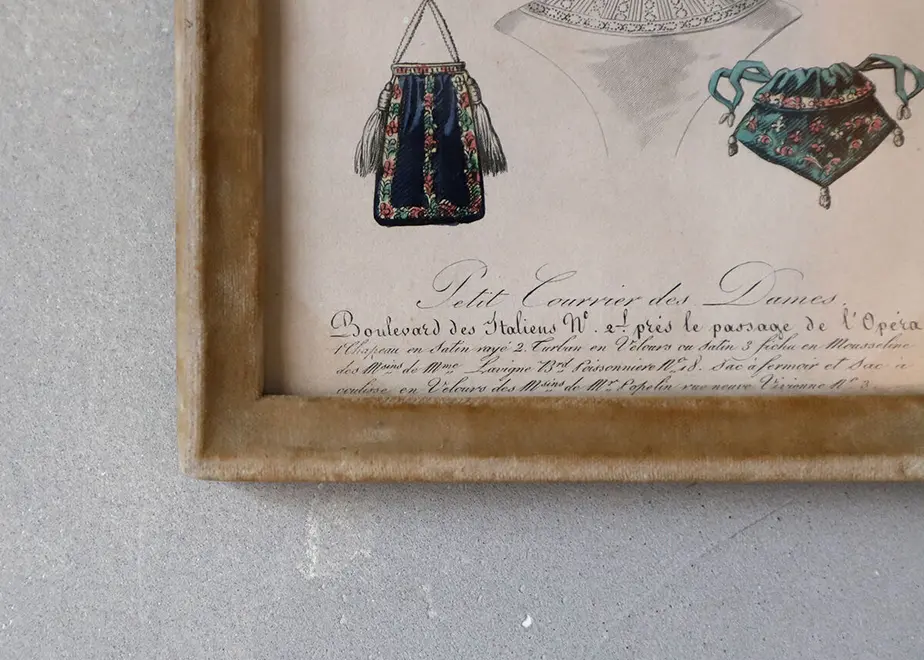 Petit Courrier des Dames.
Boulevard des Italiens Nº. 2 près le passage de l'Opéra
1 Chapeau en Satin rayé 2. Turban en Velours ou Satin 3 fichu en Mousseline
des Msins de Mme Lavigne Bd Poissonniere Nº 18. Sac à fermoir et Sac à
coulisse en Velours des Msins de Mr Papelin rue neuve Vivienne Nº 3.